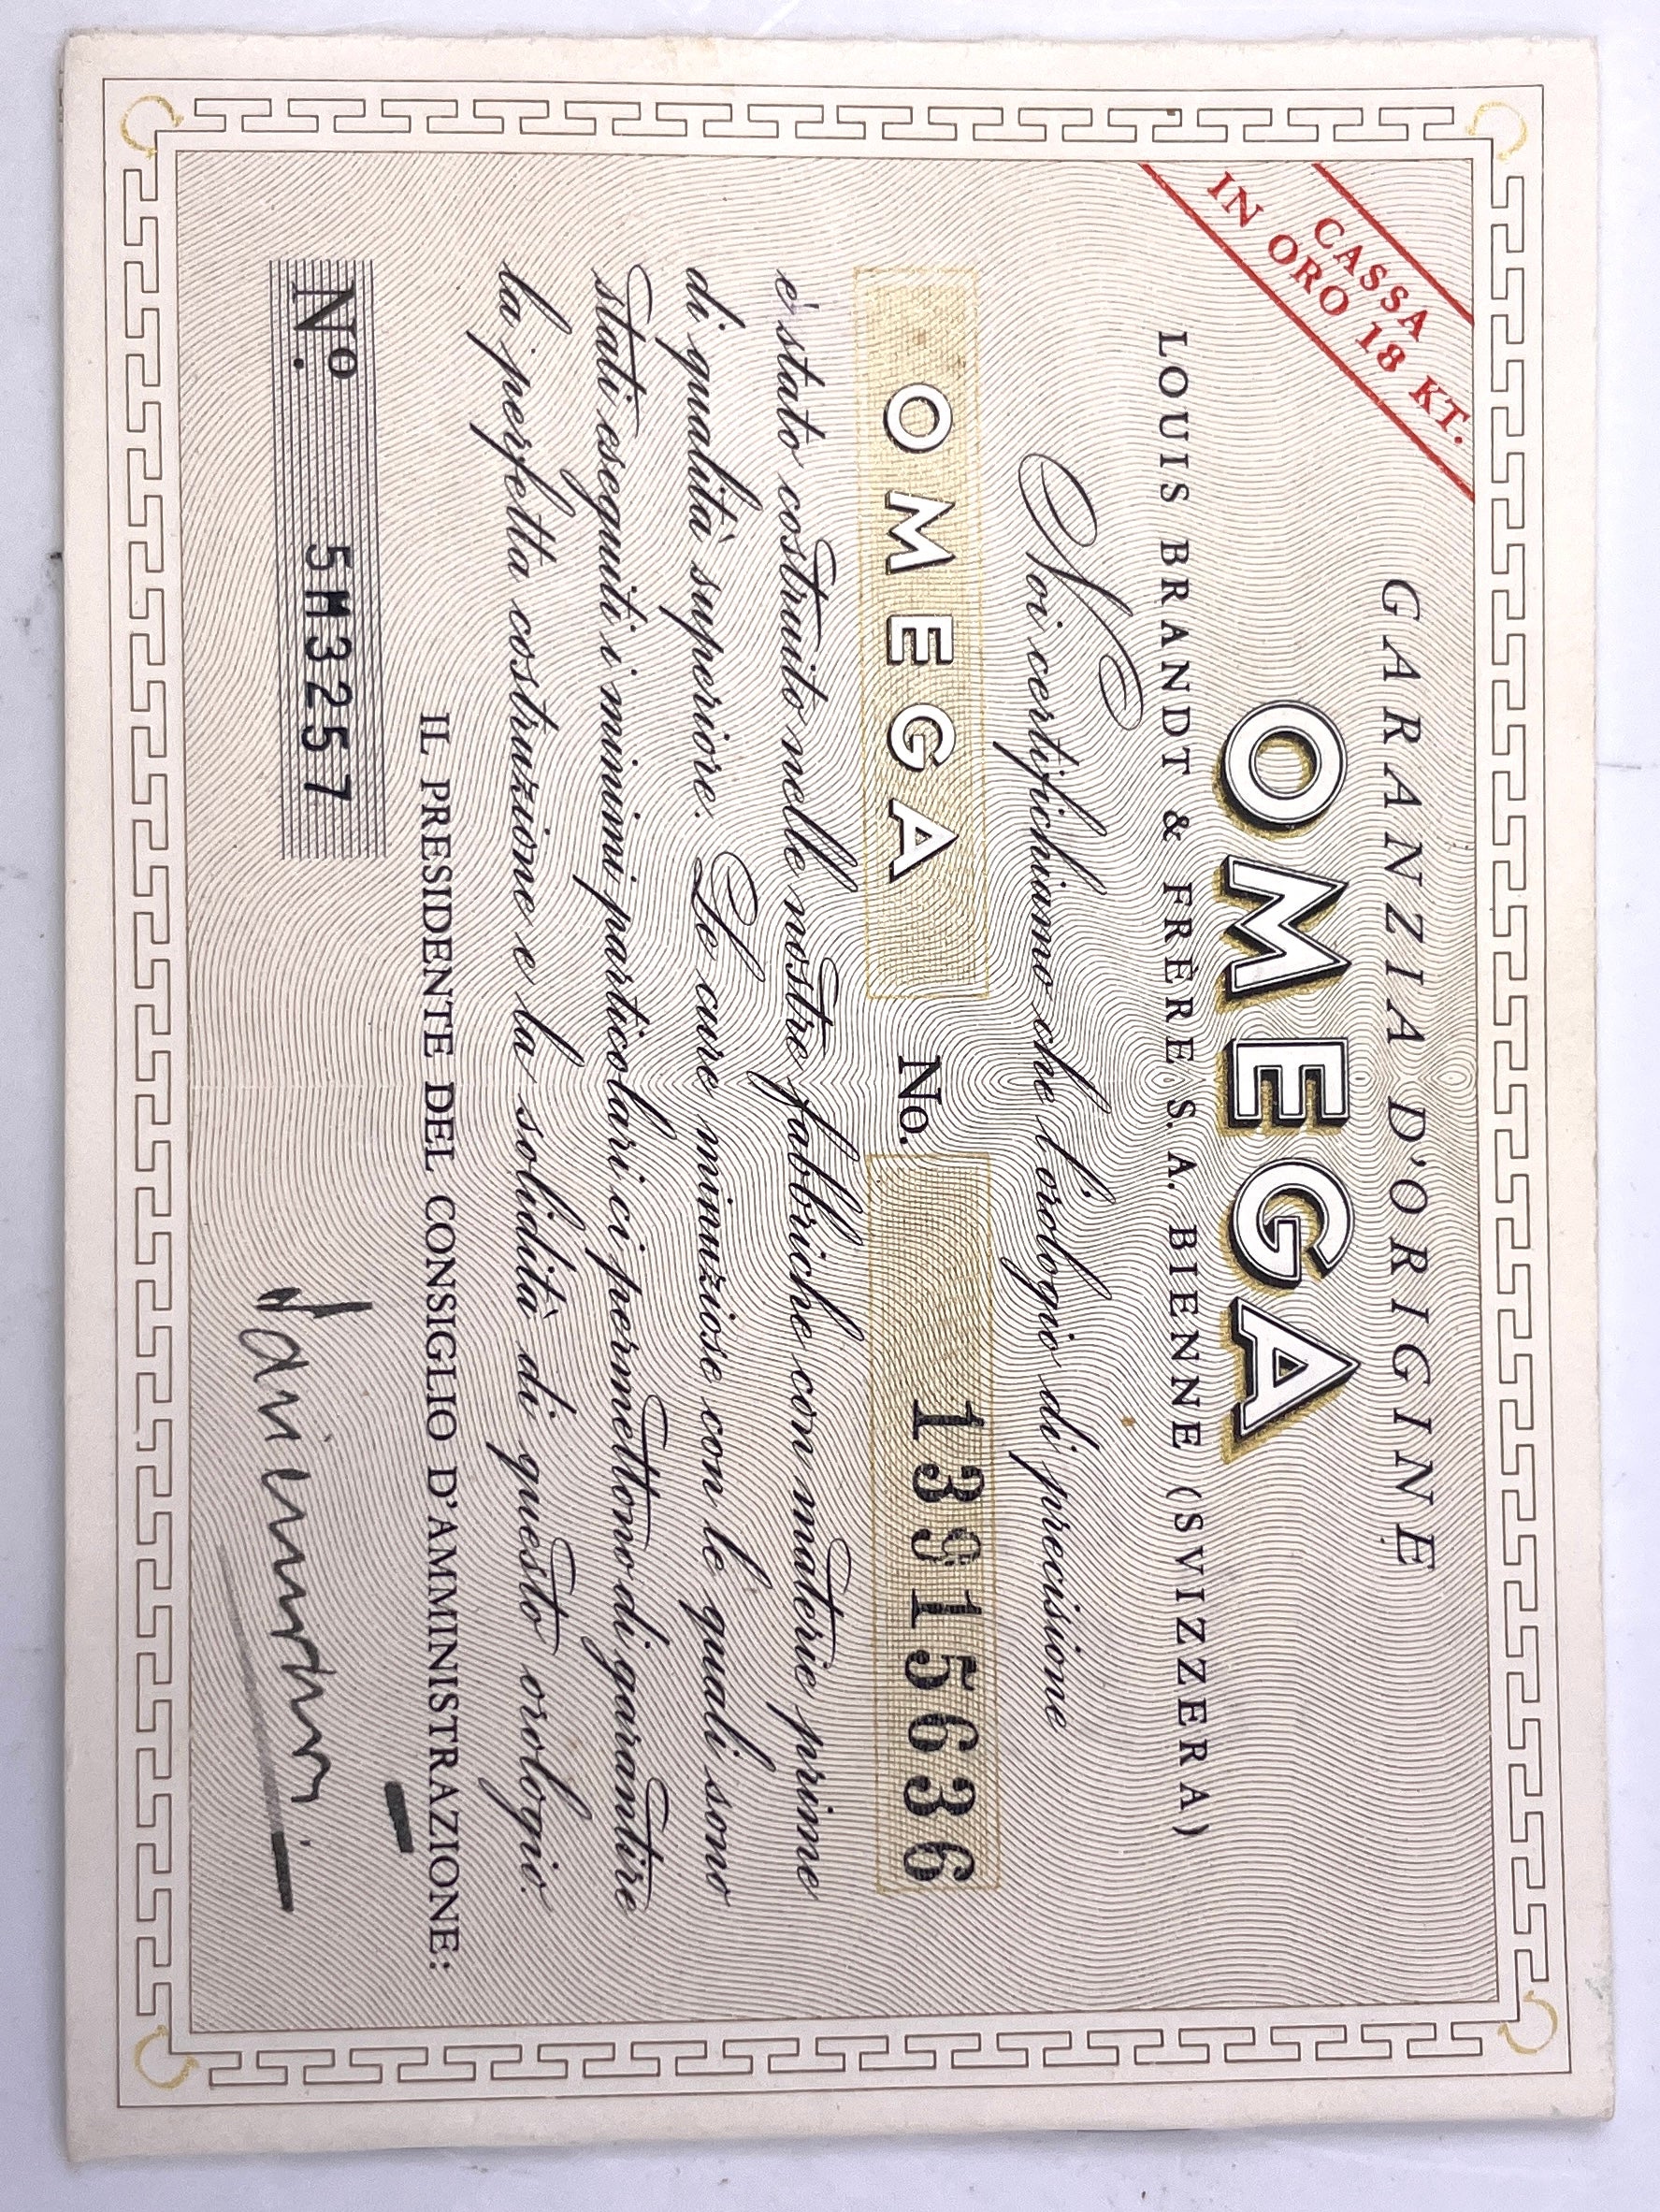 CASSA
IN ORO 18 KT.
GARANZIA D'ORIGINE
OMEGA
LOUIS BRANDT & FRÈRE S.A. BIENNE (SVIZZERA)
Noi certifichiamo che l'orologio di precisione
OMEGA No. 13915636
è stato costruito nelle nostre fabbriche con materie prime
di qualità superiore. Le cure minuziose con le quali sono
stati eseguiti i minimi particolari ci permettono di garantire
la perfetta costruzione e la solidità di questo orologio.
IL PRESIDENTE DEL CONSIGLIO D'AMMINISTRAZIONE:
No. 5M3257